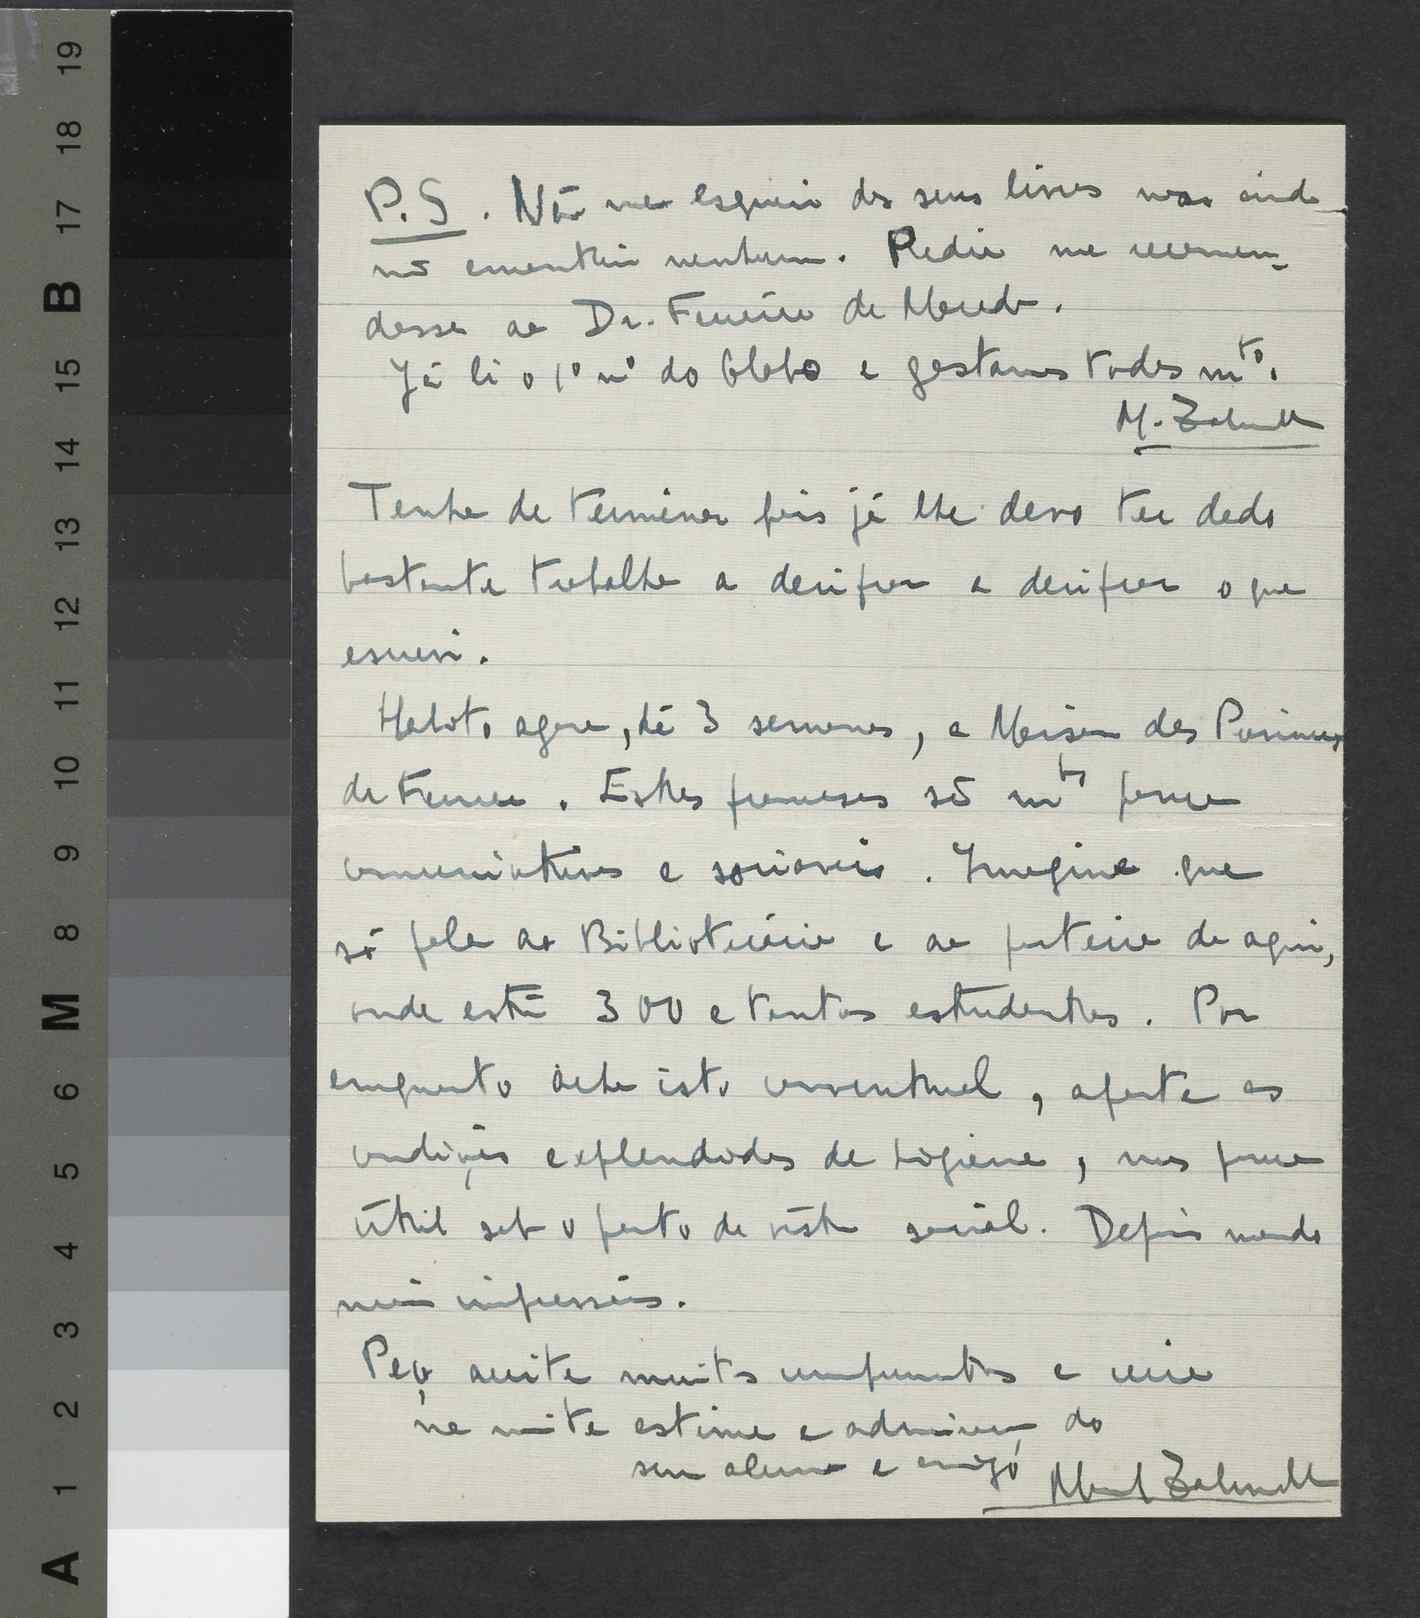 P.S. Não me esqueci dos seus livros mas ainda
nõ encontrei nenhum. Pedia me recomen-
dasse ao Dr. Ferreira de Macedo.
Já li o 1º nº do Globo e gostamos todos mto.
M. Zaluar
Tenho de terminar pois já lhe devo ter dado
bastante trabalho a decifrar e decifrar o que
escrevi.
Habito agora, há 3 semanas, a Maison des Provinces
de France. Estes franceses sõ mto pouco
comunicativos e sociaveis. Imagine que
só falo ao Bibliotecário e ao porteiro de aqui,
onde estã 300 e tantos estudantes. Por
emquanto acho isto conventual, aparte as
condições explendidas de higiene, mas pouco
útil sob o ponto de vista social. Depois mando
mais impressões.
Peço aceite muitos cumprimentos e creia
na muita estima e admiração do
seu aluno e amigo Manuel Zaluar
19 18 17 B 15 14 13 12 11 10 9 8 M 6 5 4 3 2 1 A